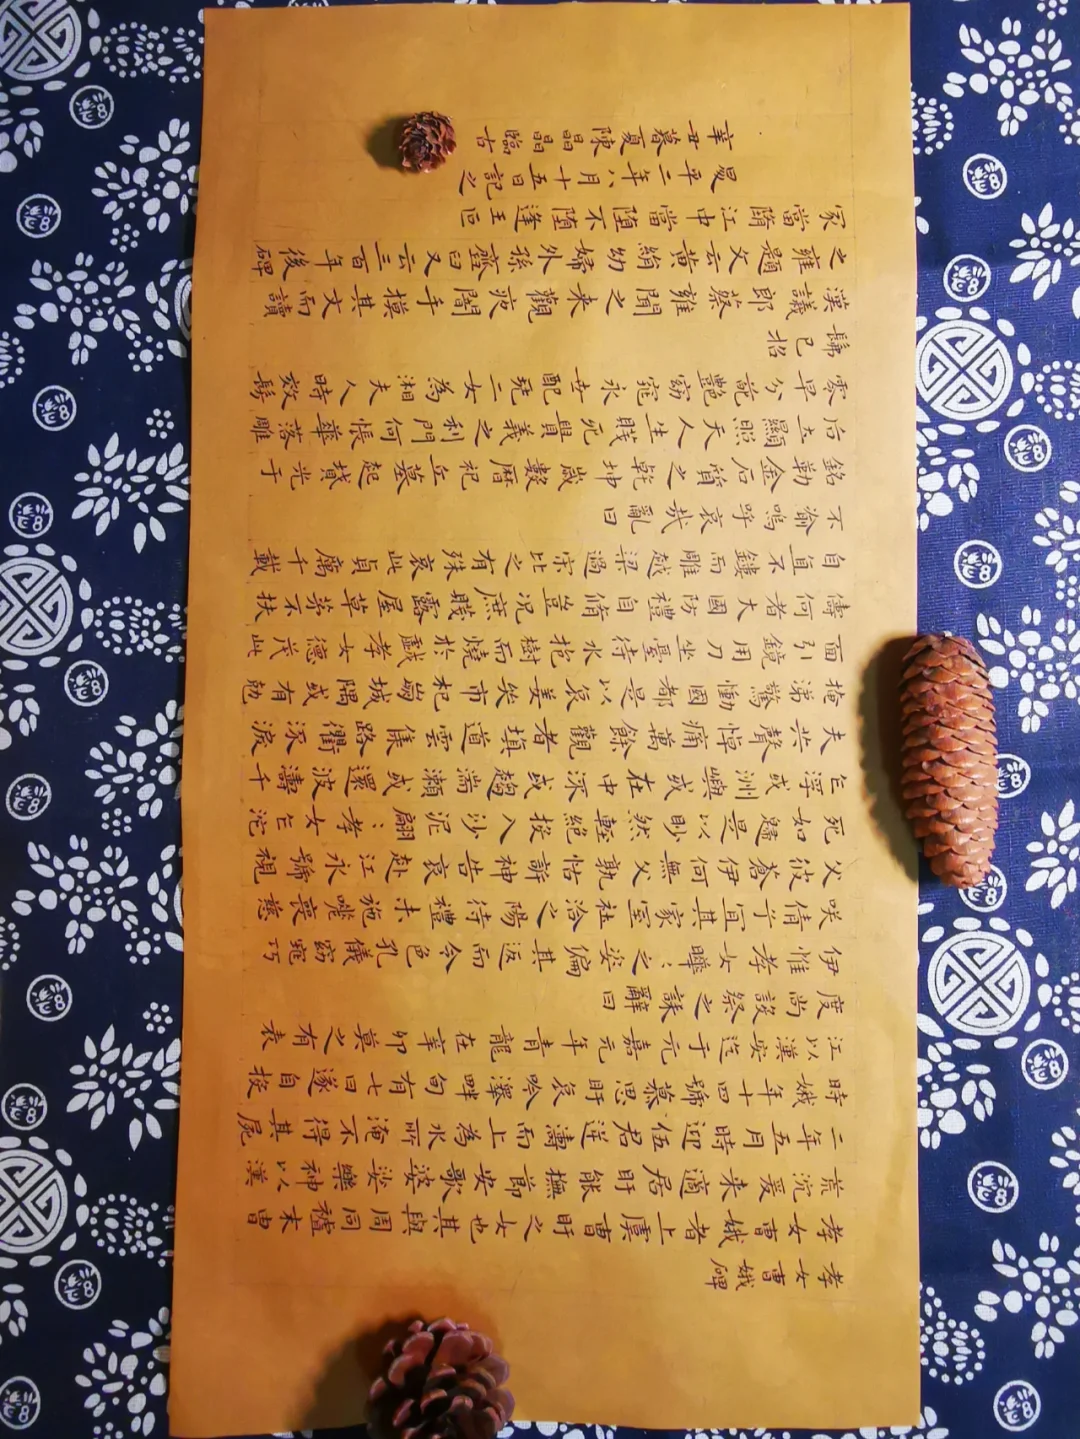 孝女曹娥碑
孝女曹娥者上虞曹盱之女也其與周同祖末曹
荒沉爰来適居盱能撫節安歌婆娑樂神以漢
二年五月時迎伍君逆濤而上為水所淹不得其屍
時娥年十四號慕思盱哀吟澤畔旬有七日遂自投
江以漢安迄于元嘉元年青龍在辛卯莫之有表
度尚設祭之誄辭曰
伊惟孝女曄:之姿偏其返而令色孔儀窈窕巧
咲倩予宜其家室在洽之陽待禮未施嗟喪慈
父彼蒼伊何無父孰怙訴神告哀赴江永號視
死如歸是以眇然輕絕投入沙泥翩:孝女乍沉
乍浮或洲嶼或在中流或趨湍瀨或還波濤千
夫共聲悼痛萬餘觀者填道雲集路衢泳淚
掩涕驚慟國都是以哀姜哭市杞崩城隅或有勉
面引鏡用刀坐臺待水抱樹而燒於戲孝女德茂此
儔何者大國防禮自脩豈況庶賤露屋草茅不扶
自直不鏤而雕越梁過宋比之有殊哀此貞厲千載
不渝嗚呼哀哉亂曰
銘勒金石質之乾坤歲數曆祀立墓起墳光于
后土顯照天人生賤死貴義之利門何悵華落雕
零早分葩艷窈窕永世配神若堯二女為湘夫人時效髣
髴已招
漢議郎蔡雍聞之来觀夾闇手摸其文而讀
之雍題文云黃絹幼婦外孫齏臼又云三百年後碑
冢當墮江中當墮不墮逢王叵
昇平二年八月十五日記之
辛丑暮夏陳晶晶臨古